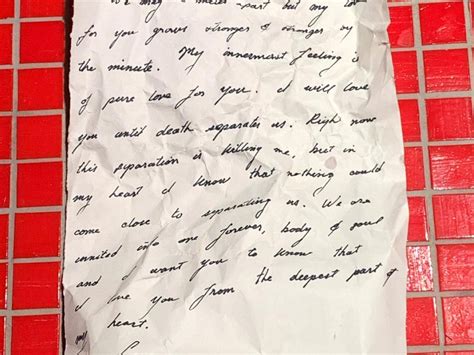 We may a miles apart but my love
for you grows stronger & stronger by
the minute. My innermost feeling is
of pure love for you. I will love
you until death separates us. Righ now
this separation is killing me, but in
my heart I know that nothing could
come close to separating us. We are
united into one forever, body & soul
and I want you to know that
I love you from the deepest part of
my heart.